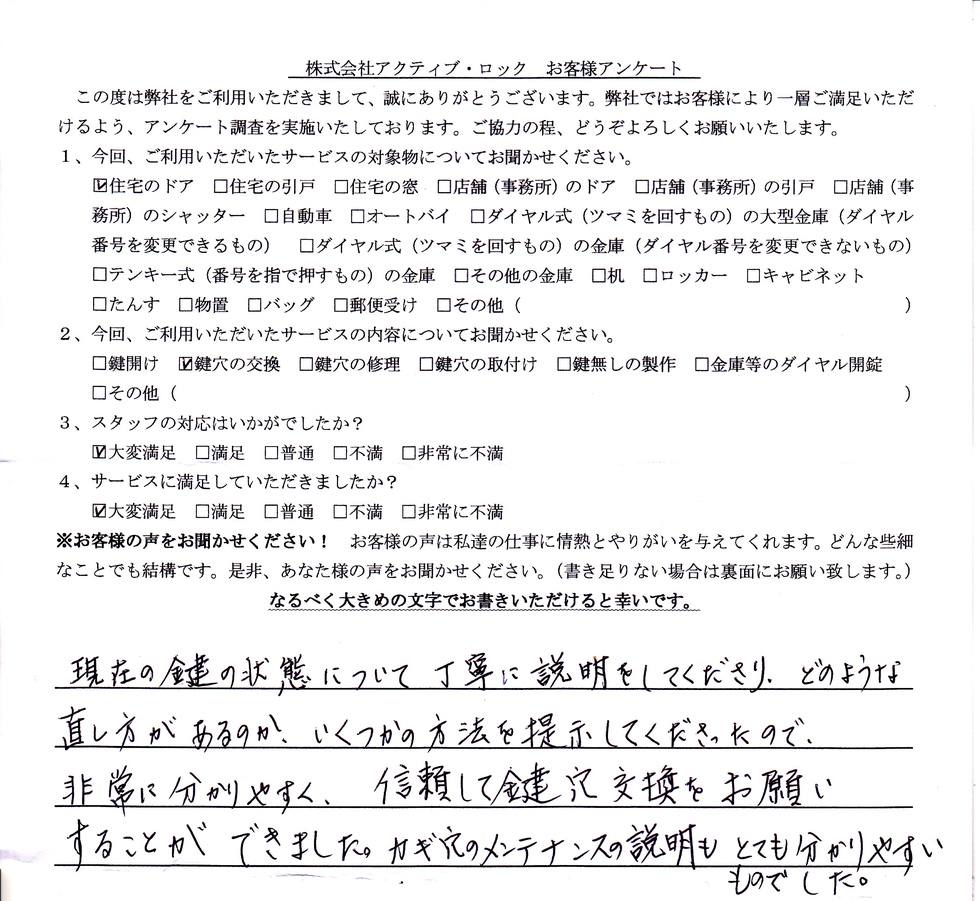 株式会社アクティブ・ロック　お客様アンケート
この度は弊社をご利用いただきまして、誠にありがとうございます。弊社ではお客様により一層ご満足いただ
けるよう、アンケート調査を実施いたしております。ご協力の程、どうぞよろしくお願いいたします。
１、今回、ご利用いただいたサービスの対象物についてお聞かせください。
☑住宅のドア　□住宅の引戸　□住宅の窓　□店舗（事務所）のドア　□店舗（事務所）の引戸　□店舗（事
務所）のシャッター　□自動車　□オートバイ　□ダイヤル式（ツマミを回すもの）の大型金庫（ダイヤル
番号を変更できるもの）　□ダイヤル式（ツマミを回すもの）の金庫（ダイヤル番号を変更できないもの）
□テンキー式（番号を指で押すもの）の金庫　□その他の金庫　□机　□ロッカー　□キャビネット
□たんす　□物置　□バッグ　□郵便受け　□その他（　　　　　　　　　　）
２、今回、ご利用いただいたサービスの内容についてお聞かせください。
□鍵開け　☑鍵穴の交換　□鍵穴の修理　□鍵穴の取付け　□鍵無しの製作　□金庫等のダイヤル開錠
□その他（　　　　　　　　　　）
３、スタッフの対応はいかがでしたか？
☑大変満足　□満足　□普通　□不満　□非常に不満
４、サービスに満足していただきましたか？
☑大変満足　□満足　□普通　□不満　□非常に不満
※お客様の声をお聞かせください！　お客様の声は私達の仕事に情熱とやりがいを与えてくれます。どんな些細
なことでも結構です。是非、あなた様の声をお聞かせください。（書き足りない場合は裏面にお願い致します。）
なるべく大きめの文字でお書きいただけると幸いです。
現在の鍵の状態について丁寧に説明をしてくださり、どのような
直し方があるのか、いくつかの方法を提示してくださったので、
非常に分かりやすく、信頼して鍵穴交換をお願い
することができました。カギ穴のメンテナンスの説明もとても分かりやすい
ものでした。